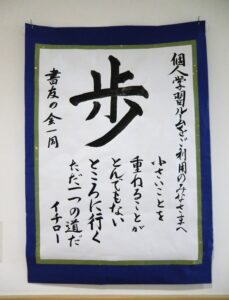 個人学習ルームをご利用のみなさまへ
歩
小さいことを
重ねることが
とんでもない
ところに行く
ただ一つの道だ
イチロー
書友の会一同